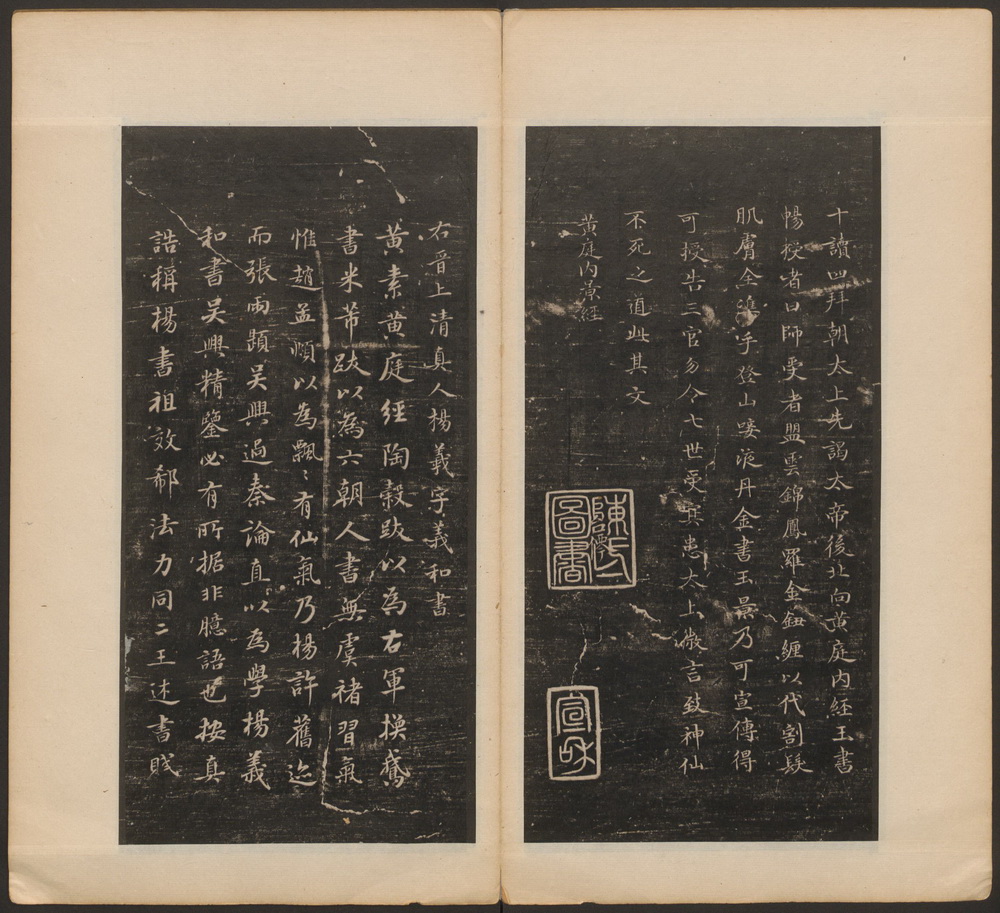 十讀四拜朝太上先謁太帝後北向黃庭內経玉書
暢授者曰師受者盟雲錦鳳羅金鈕纏以代割髮
肌膚全攜手登山唼液丹金書玉景乃可宣傳得
可授告三官勿令七世受冥患太上微言致神仙
不死之道此其文
黃庭內景経
圖書
宣和
右晉上清真人楊義字義和書
黃素黃庭經陶穀跋以為右軍換鵞
書米芾跋以為六朝人書無虞褚習氣
惟趙孟頫以為飄〻有仙氣乃楊許舊迹
而張雨題吳興過秦論直以為學楊義
和書吳興精鑒必有所据非臆語也按真
誥稱楊書祖效郗法力同二王述書賦